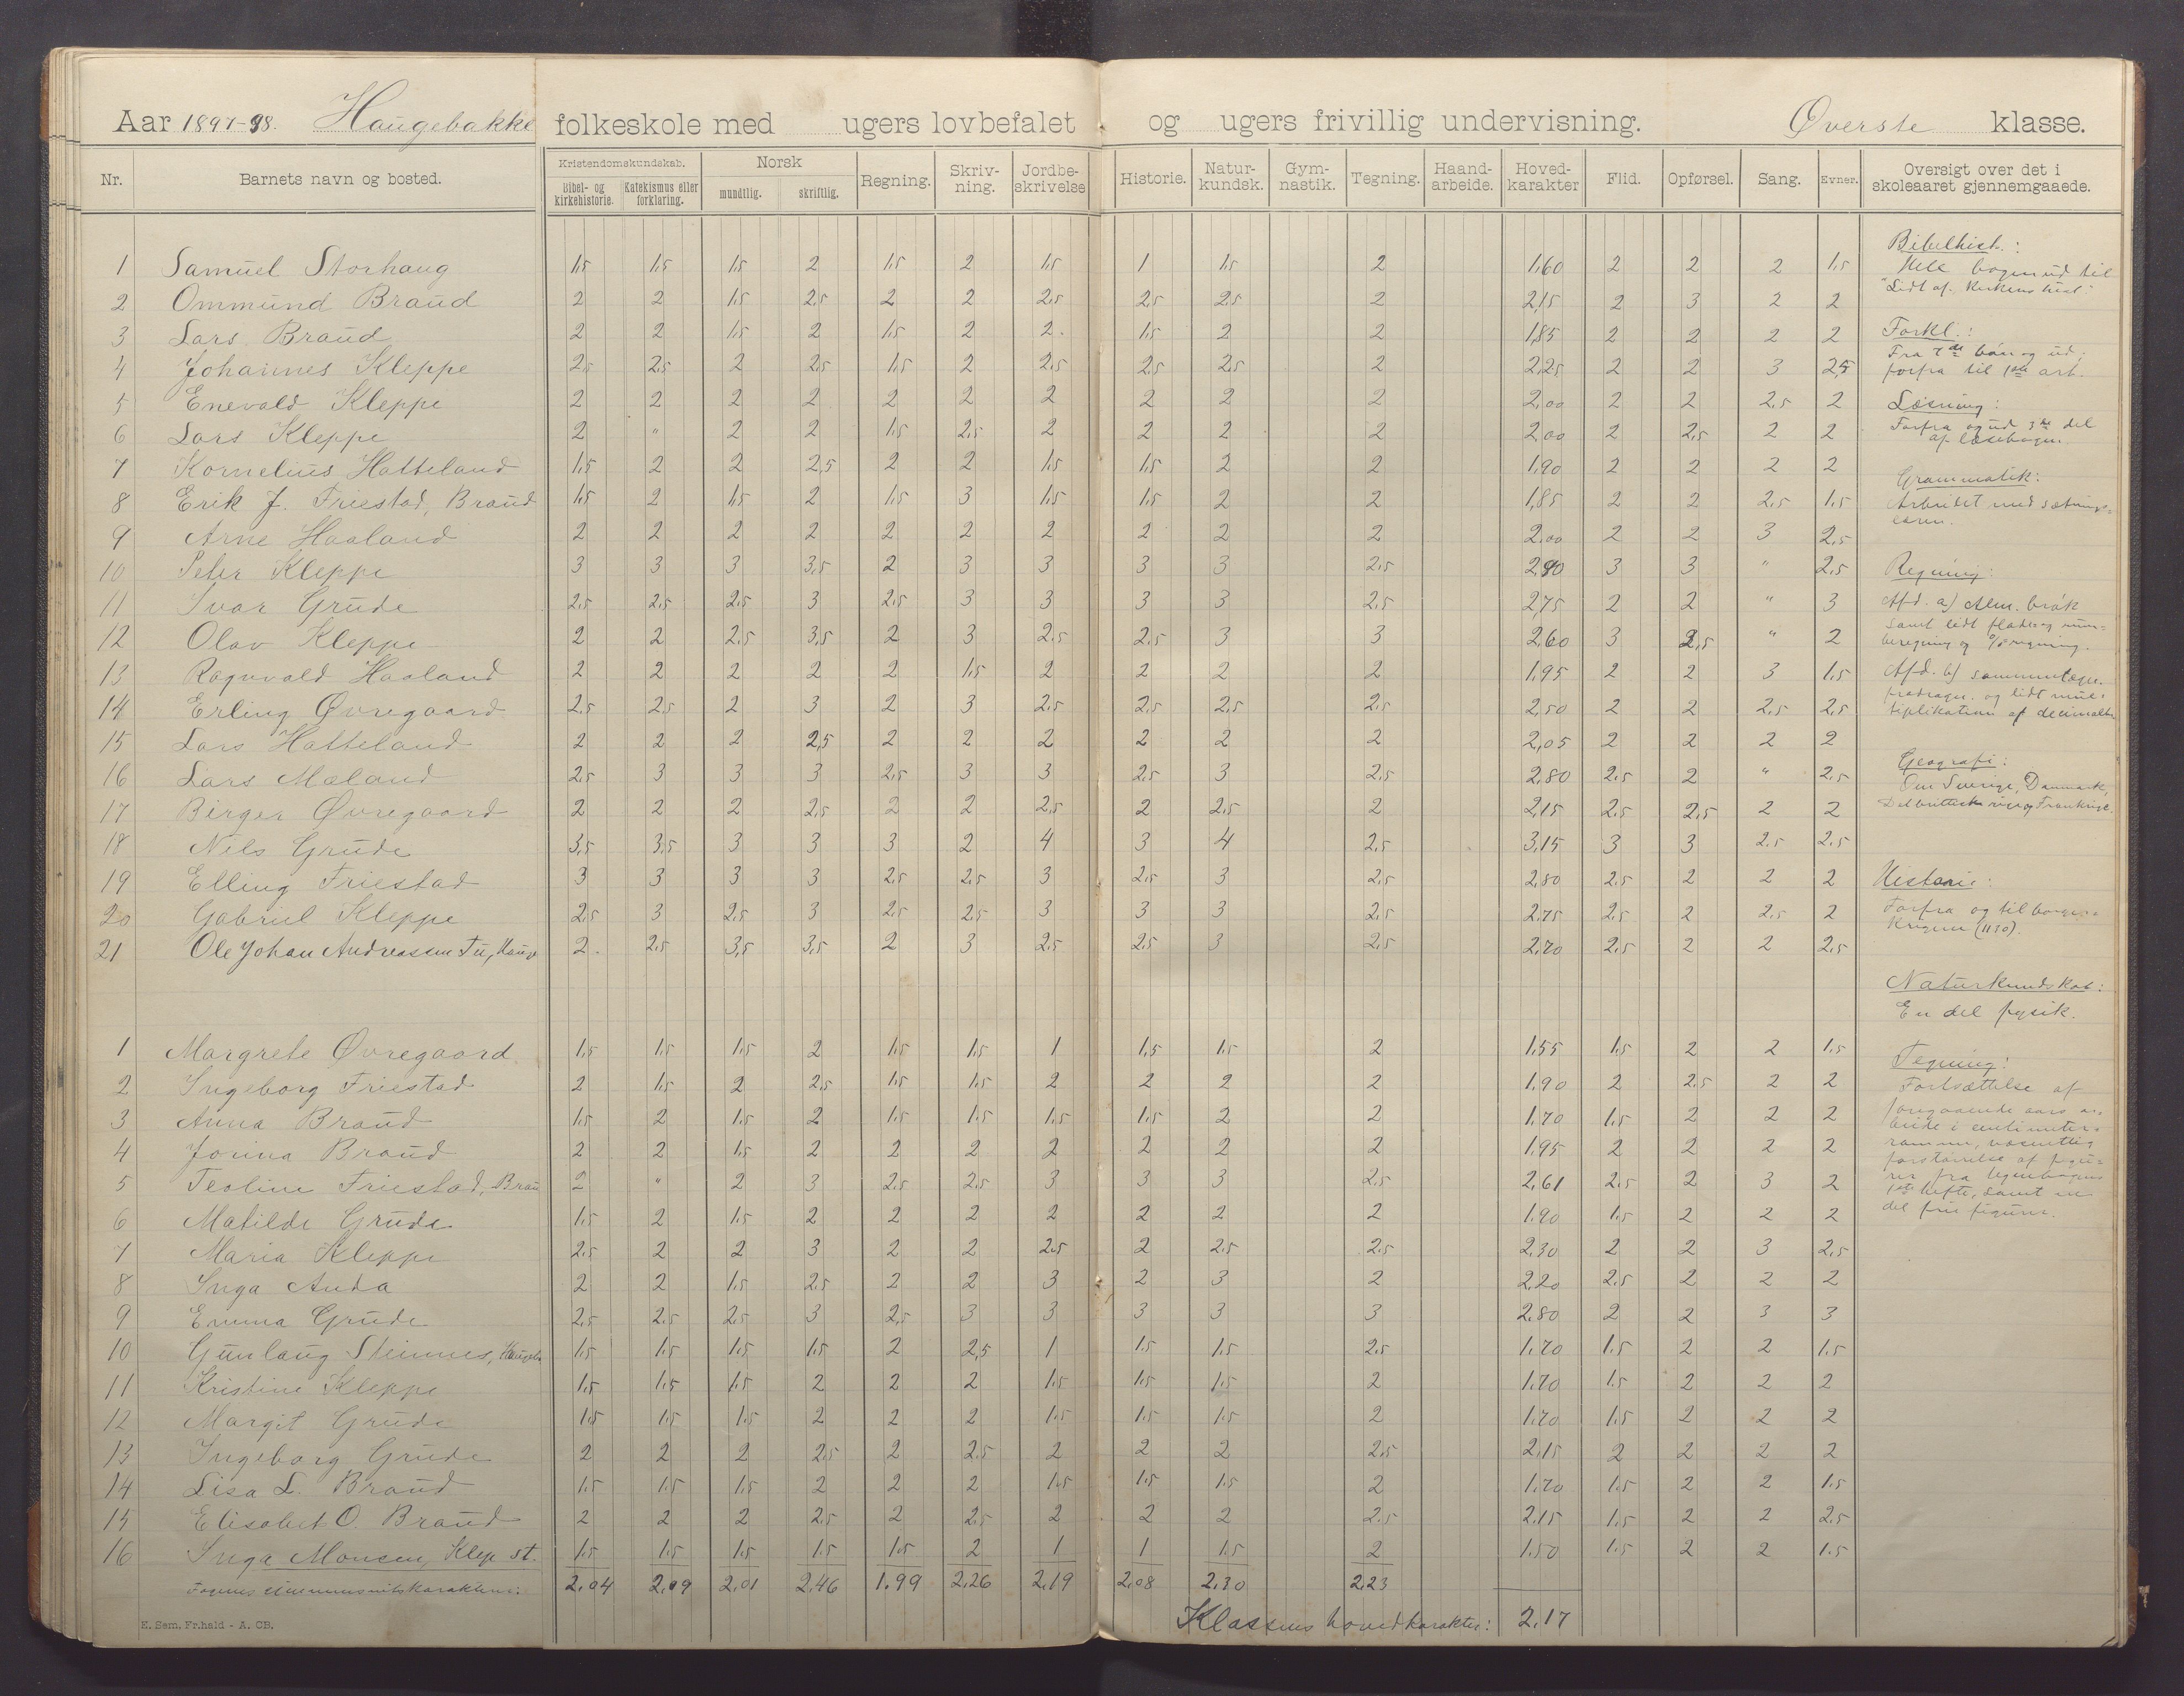 Aar 1897-98. Haugebakke folkeskole med ugers lovbefalet og ugers frivillig undervisning. Øverste klasse.
Nr. Barnets navn og bosted. Kristendomskundskab. Bibel- og kirkehistorie. Katekismus eller forklaring. Norsk mundtlig. skriftlig. Regning. Skrivning. Jordbeskrivelse Historie. Naturkundsk. Gymnastik. Tegning. Haandarbeide. Hovedkarakter Flid. Opførsel. Sang. Evner. Oversigt over det i skoleaaret gjennemgaaede.
1 Samuel Storhaug 1,5 1,5 1,5 2 1,5 2 1,5 1 1,5 2 1,60 2 2 2 1,5
2 Ommund Braud 2 2 1,5 2,5 2 2 2,5 2,5 2,5 2 2,15 2 3 2 2
3 Lars Braud 2 2 1,5 2 1,5 2 2. 1,5 2 2 1,85 2 2 2 2
4 Johannes Kleppe 2,5 2,5 2 2,5 1,5 2 2,5 2,5 2,5 2 2,25 2 2 3 2,5
5 Enevald Kleppe 2 2 2 2 2 2 2 2 2 2 2,00 2 2 2,5 2
6 Lars Kleppe 2 " 2 2 1,5 2,5 2 2 2 2 2,00 2 2,5 2 2
7 Kornelius Hatteland 1,5 2 2 2,5 2 2 1,5 1,5 2 2 1,90 2 2 2 2
8 Erik J. Friestad, Braud 1,5 2 1,5 2 1,5 3 1,5 1,5 2 2 1,85 2 2 2,5 1,5
9 Arne Haaland 2 2 2 2 2 2 2 2 2 2 2,00 2 2 3 2,5
10 Peter Kleppe 3 3 3 3,5 2 3 3 3 3 2,5 2,90 3 3 " 2,5
11 Ivar Grude 2,5 2,5 2,5 3 2,5 3 3 3 3 2,5 2,75 2 2 " 3
12 Olav Kleppe 2 2 2,5 3,5 2 3 2,5 2,5 3 3 2,60 3 2,5 " 2
13 Ragnvald Haaland 2 2 2 2 2 1,5 2 2 2 2 1,95 2 2 3 1,5
14 Erling Øvregaard 2,5 2,5 2 3 2 3 2,5 2,5 2,5 2,5 2,50 2 2 2,5 2,5
15 Lars Hatteland 2 2 2 2,5 2 2 2 2 2 2 2,05 2 2 2 2
16 Lars Mæland 2,5 3 3 3 2,5 3 3 2,5 3 2,5 2,80 2,5 2 " 2,5
17 Birger Øvregaard 2 2 2 2,5 2 2 2,5 2 2,5 2 2,15 2,5 2,5 2 2
18 Nils Grude 3,5 3,5 3 3 3 2 4 3 4 2,5 3,15 3 3 2,5 2,5
19 Elling Friestad 3 3 3 3 2,5 2,5 3 2,5 3 2,5 2,80 2,5 2 2 2
20 Gabriel Kleppe 2,5 3 2,5 3 2,5 2,5 3 3 3 2,5 2,75 2,5 2 2,5 2
21 Ole Johan Andreassen Tu, Hauge 2. 2,5 3,5 3,5 2 3 2,5 2,5 3 2,5 2,70 2,5 2 2 2,5
1 Margrete Øvregaard. 1,5 1,5 1,5 2 1,5 1,5 1 1,5 1,5 2 1,55 1,5 2 2 1,5
2 Ingeborg Friestad 2 1,5 2 2,5 1,5 1,5 2 2 2 2 1,90 2 2,5 2 2
3 Anna Braud 1,5 2 1,5 2 1,5 1,5 1,5 1,5 2 2 1,70 1,5 2 2 2
4 Jorina Braud 2 2 1,5 2 2 2 2 2 2 2 1,95 2 2 2 2
5 Teoline Friestad, Brau 2 " 2 3 2,5 2,5 3 3 3 2,5 2,61 2,5 2 3 2
6 Matilde Grude 1,5 2 1,5 2 2 2 2 2 2 2 1,90 1,5 2 2 2
7 Maria Kleppe 2,5 2 2 3 2 2 2,5 2 2,5 2,5 2,30 2 2 3 2,5
8 Inga Anda 2 2 1,5 2,5 2 2 3 2 3 2 2,20 2,5 2 2 2
9 Emma Grude 2,5 2,5 2,5 3 2,5 3 3 3 3 3 2,80 2 2 3 3
10 Gunlaug Steinnes, 1,5 1,5 1,5 1,5 2 2,5 1 1,5 1,5 2,5 1,70 1,5 2 2 1,5
11 Kristine Kleppe 1,5 1,5 1,5 2 2 2 1,5 1,5 1,5 2 1,70 1,5 2 2 2
12 Margit Grude 1,5 1,5 1,5 2 2 2 1,5 1,5 1,5 2 1,70 1,5 2 2 2
13 Ingeborg Grude 2 2 2 2,5 2 2,5 2 2 2 2,5 2,15 2 2 2 2
14 Lisa L. Braud 1,5 1,5 1,5 2 2 2 1,5 1,5 1,5 2 1,70 1,5 2 2 1,5
15 Elisabet O. Braud 2 2 2 2,5 2 2,5 2 2 2 2,5 2,15 1,5 2 2 2,5
16 Inga Monsen, Klep st. 1,5 1,5 1,5 1,5 1,5 2 1 1 1,5 2 1,50 1,5 2 2 1,5
Fagenes 2,04 2,09 2,01 2,46 1,99 2,26 2,19 2,08 2,30 2,23
Klassens hovedkarakter: 2,17
K. Sem. Fr.hald - A. CB.
Bibelhist.:
Hele bogen ud til
"Lidt af kirkens hist."
Forkl.:
Fra 7de bøn og ud,
forfra til 1ste art.
Læsning:
Forfra og ud 3die del
af læsebogen.
Grammatik:
Arbeidet med sætnings-
læren.
Regning:
Afd. a) Alm. brøk
samt lidt flade og rum-
beregning og %regning.
Afd. b) sammenlægn.
fradragn. og lidt mul-
tiplikation af decimalbr
Geografi:
Om Sverige, Danmark,
Det brittiske rige og Frankrige.
Historie:
Forfra og til borger-
krigene (1130).
Naturkundskab:
En del fysik.
Tegning:
Fortsættelse af
foregaaende aars ar-
beide i centimeter-
ramme, væsentlig
forstørrelse af figu-
rer fra tegnebogens
1ste hefte, samt en
del frie figurer.